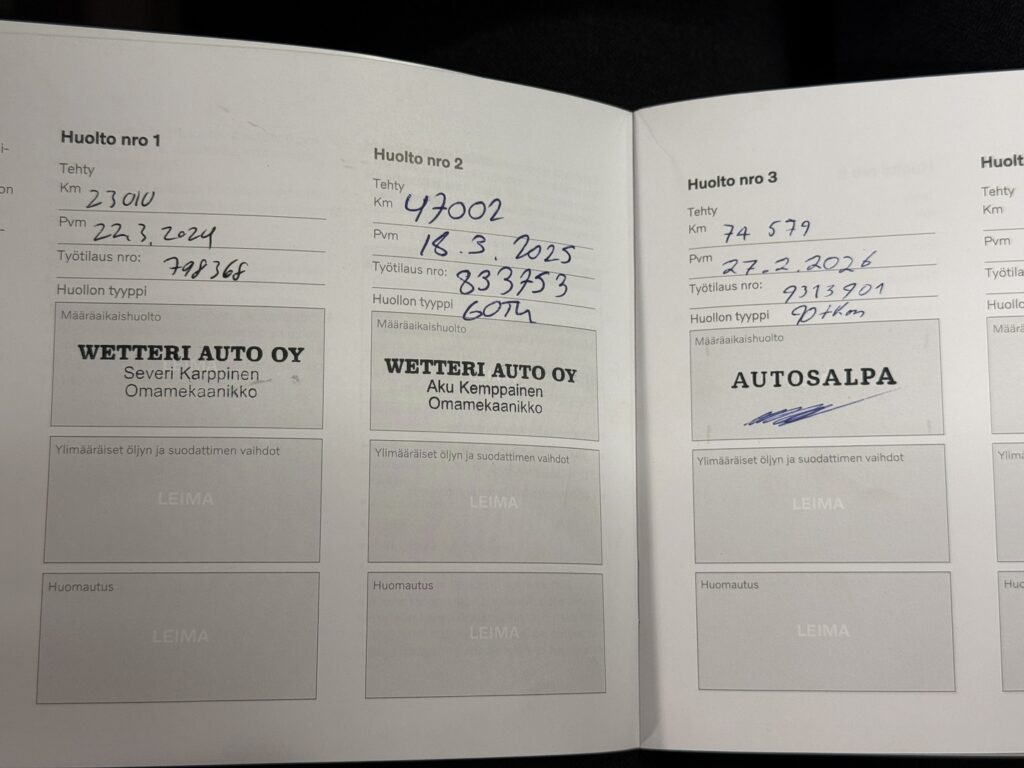 Huolto nro 1
Tehty
Km 23010
Pvm 22.3.2024
Työtilaus nro: 798368
Huollon tyyppi
Määräaikaishuolto
WETTERI AUTO OY
Severi Karppinen
Omamekaanikko
Ylimääräiset öljyn ja suodattimen vaihdot
LEIMA
Huomautus
LEIMA
Huolto nro 2
Tehty
Km 47002
Pvm 18.3.2025
Työtilaus nro: 833753
Huollon tyyppi
Määräaikaishuolto
WETTERI AUTO OY
Aku Kemppainen
Omamekaanikko
Ylimääräiset öljyn ja suodattimen vaihdot
LEIMA
Huomautus
LEIMA
Huolto nro 3
Tehty
Km 74 579
Pvm 27.2.2026
Työtilaus nro: 9313901
Huollon tyyppi 90 tkm
Määräaikaishuolto
AUTOSALPA
Ylimääräiset öljyn ja suodattimen vaihdot
LEIMA
Huomautus
LEIMA
Tehty
Km
Pvm